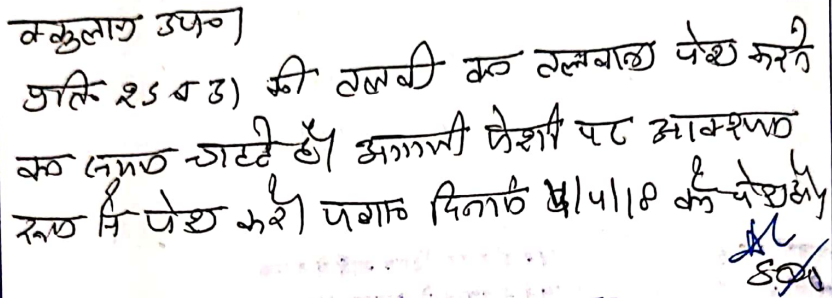 वकुलाय उप०।
प्रति २5 व 3) की तलवी का तलवाना पेश करने
का समय चाहते है। आगामी पेशी पर आवश्यक
रूप से पेश करें। पत्रा० दिनांक 4/4/18 को पेश हो।